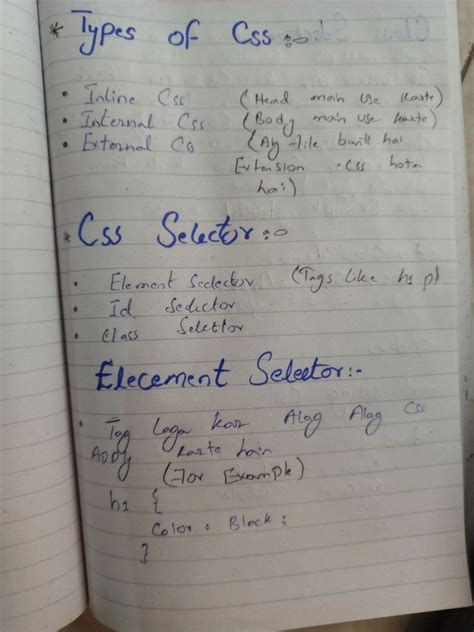 * Types of Css :-
• Inline Css (Head main use karte)
• Internal Css (Body main use karte)
• External Cs (Alg file banti hai
Extension .css hota
hai)
* Css Selector :-
• Element Selector (Tags like h1 p)
• Id Selector
• Class Selector
Elecement Selector:-
• Tag laga kar Alag Alag Css
Apply karte hain
(For Example)
h1 {
Color : Black;
}